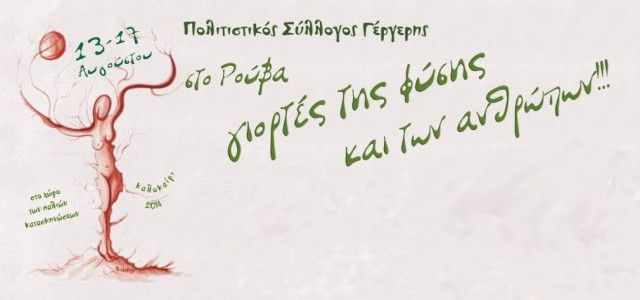 13-17
Αυγούστου
Πολιτιστικός Σύλλογος Γέργερης
στο Ρούβα
γιορτές της φύσης
και των ανθρώπων!!!
στο χώρο
των παλιών
κατασκηνώσεων
καλοκαίρι
2014